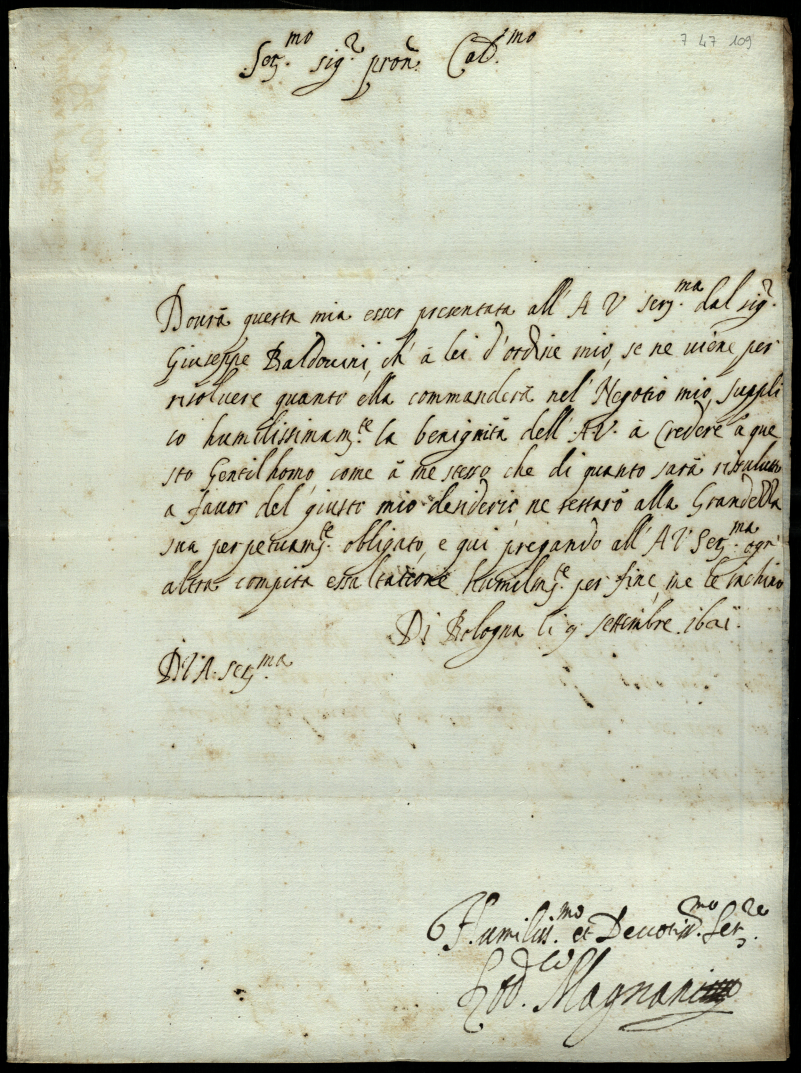 7 47 109
Ser.mo sig.r pron. Col.mo
Dourà questa mia esser presentata all' A V Ser.ma dal sig.r
Giuseppe Baldouini, ch' à lei d'ordine mio, se ne uiene per
risoluere quanto ella commanderà nel' Negotio mio, suppli
co humilissimam.te la benignità dell' AV. à credere à que
sto Gentilhomo, come à me stesso, che di quanto sarà risoluto
a fauor del' giusto mio desiderio ne restarò alla Grandezza
sua perpetuam.te obligato, e qui pregando all' A V Ser.ma ogn'
altra compita essaltatione humilm.te per fine, me le inchino
Di Bologna li 9 settembre
D V A. ser.ma
Humiliss.mo et Deuotiss.mo Ser.re
Lod.co Magnani